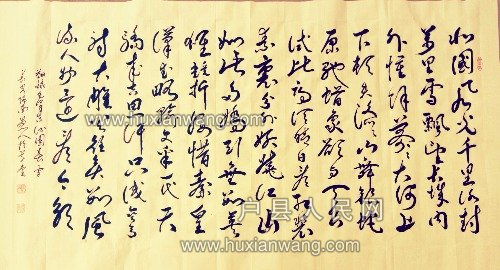 北国风光千里冰封
万里雪飘望长城内
外惟馀莽莽大河上
下顿失滔滔山舞银蛇
原驰蜡象欲与天公
试比高须晴日看红装
素裹分外妖娆江山
如此多娇引无数英
雄竞折腰惜秦皇
汉武略输文采一代天
骄成吉思汗只识弯
射大雕俱往矣数风
流人物还看今朝
沁园春雪
户县人民网
www.huxianwang.com
www.huxianwang.com
www.huxianwang.com